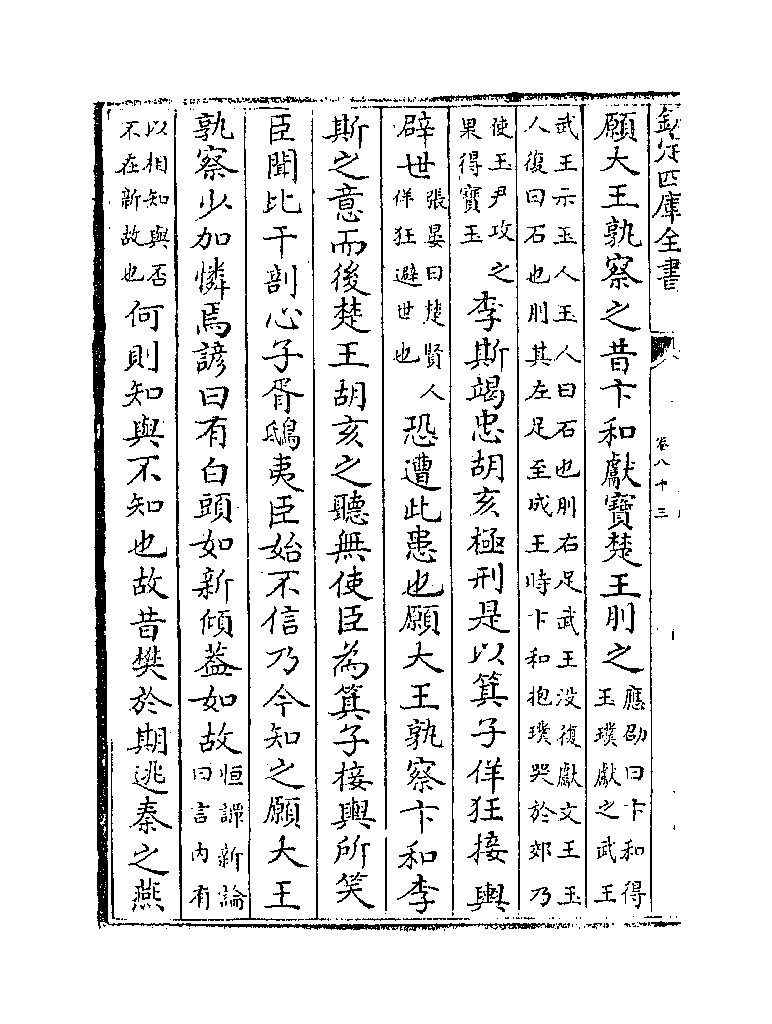 欽定四庫全書
卷八十三
願大王孰察之昔卞和獻寶楚王刖之應劭曰卞和得玉璞獻之武王
武王示玉人玉人曰石也刖右足武王没復獻文王玉
人復曰石也刖其左足至成王時卞和抱璞哭於郊乃
使玉尹攻之果得寶玉李斯竭忠胡亥極刑是以箕子佯狂接輿
辟世張晏曰楚賢人佯狂避世也恐遭此患也願大王孰察卞和李
斯之意而後楚王胡亥之聽無使臣為箕子接輿所笑
臣聞比干剖心子胥鴟夷臣始不信乃今知之願大王
孰察少加憐焉諺曰有白頭如新傾葢如故恒譚新論曰言内有
以相知與否不在新故也何則知與不知也故昔樊於期逃秦之燕